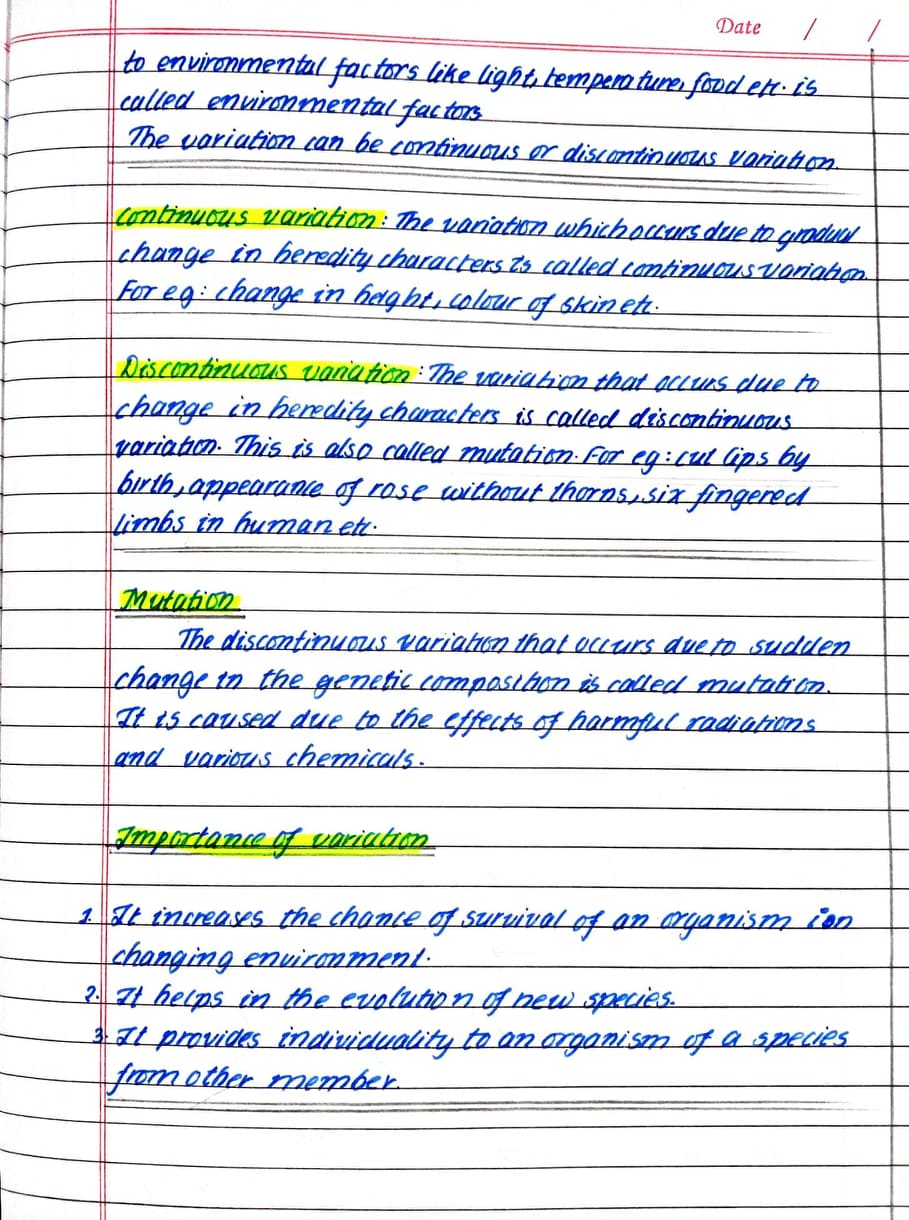 Date / /
to environmental factors like light, temperature, food etc. is
called environmental factors
The variation can be continuous or discontinuous variation.
continuous variation: The variation which occurs due to gradual
change in heredity characters is called continuous variation.
For eg: change in height, colour of skin etc.
Discontinuous variation: The variation that occurs due to
change in heredity characters is called discontinuous
variation. This is also called mutation. For eg: cut lips by
birth, appearance of rose without thorns, six fingered
limbs in human etc.
Mutation
The discontinuous variation that occurs due to sudden
change in the genetic composition is called mutation.
It is caused due to the effects of harmful radiations
and various chemicals.
Importance of variation
1. It increases the chance of survival of an organism ion
changing environment.
2. It helps in the evolution of new species.
3. It provides individuality to an organism of a species
from other member.